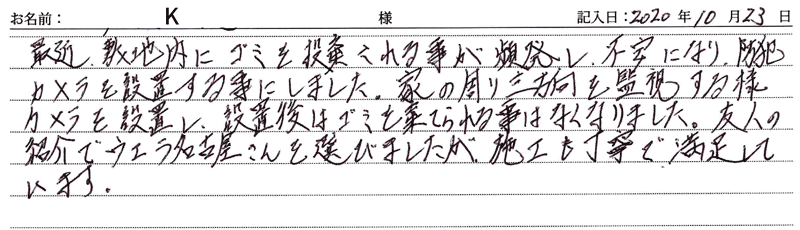 お名前： K 様 記入日：2020 年 10 月 23 日
最近、敷地内にゴミを投棄される事が頻発し、不安になり、防犯
カメラを設置する事にしました。家の周り三方向を監視する様
カメラを設置し、設置後はゴミを棄てられる事はなくなりました。友人の
紹介でウエラ名古屋さんを選びましたが、施工も丁寧で満足して
います。